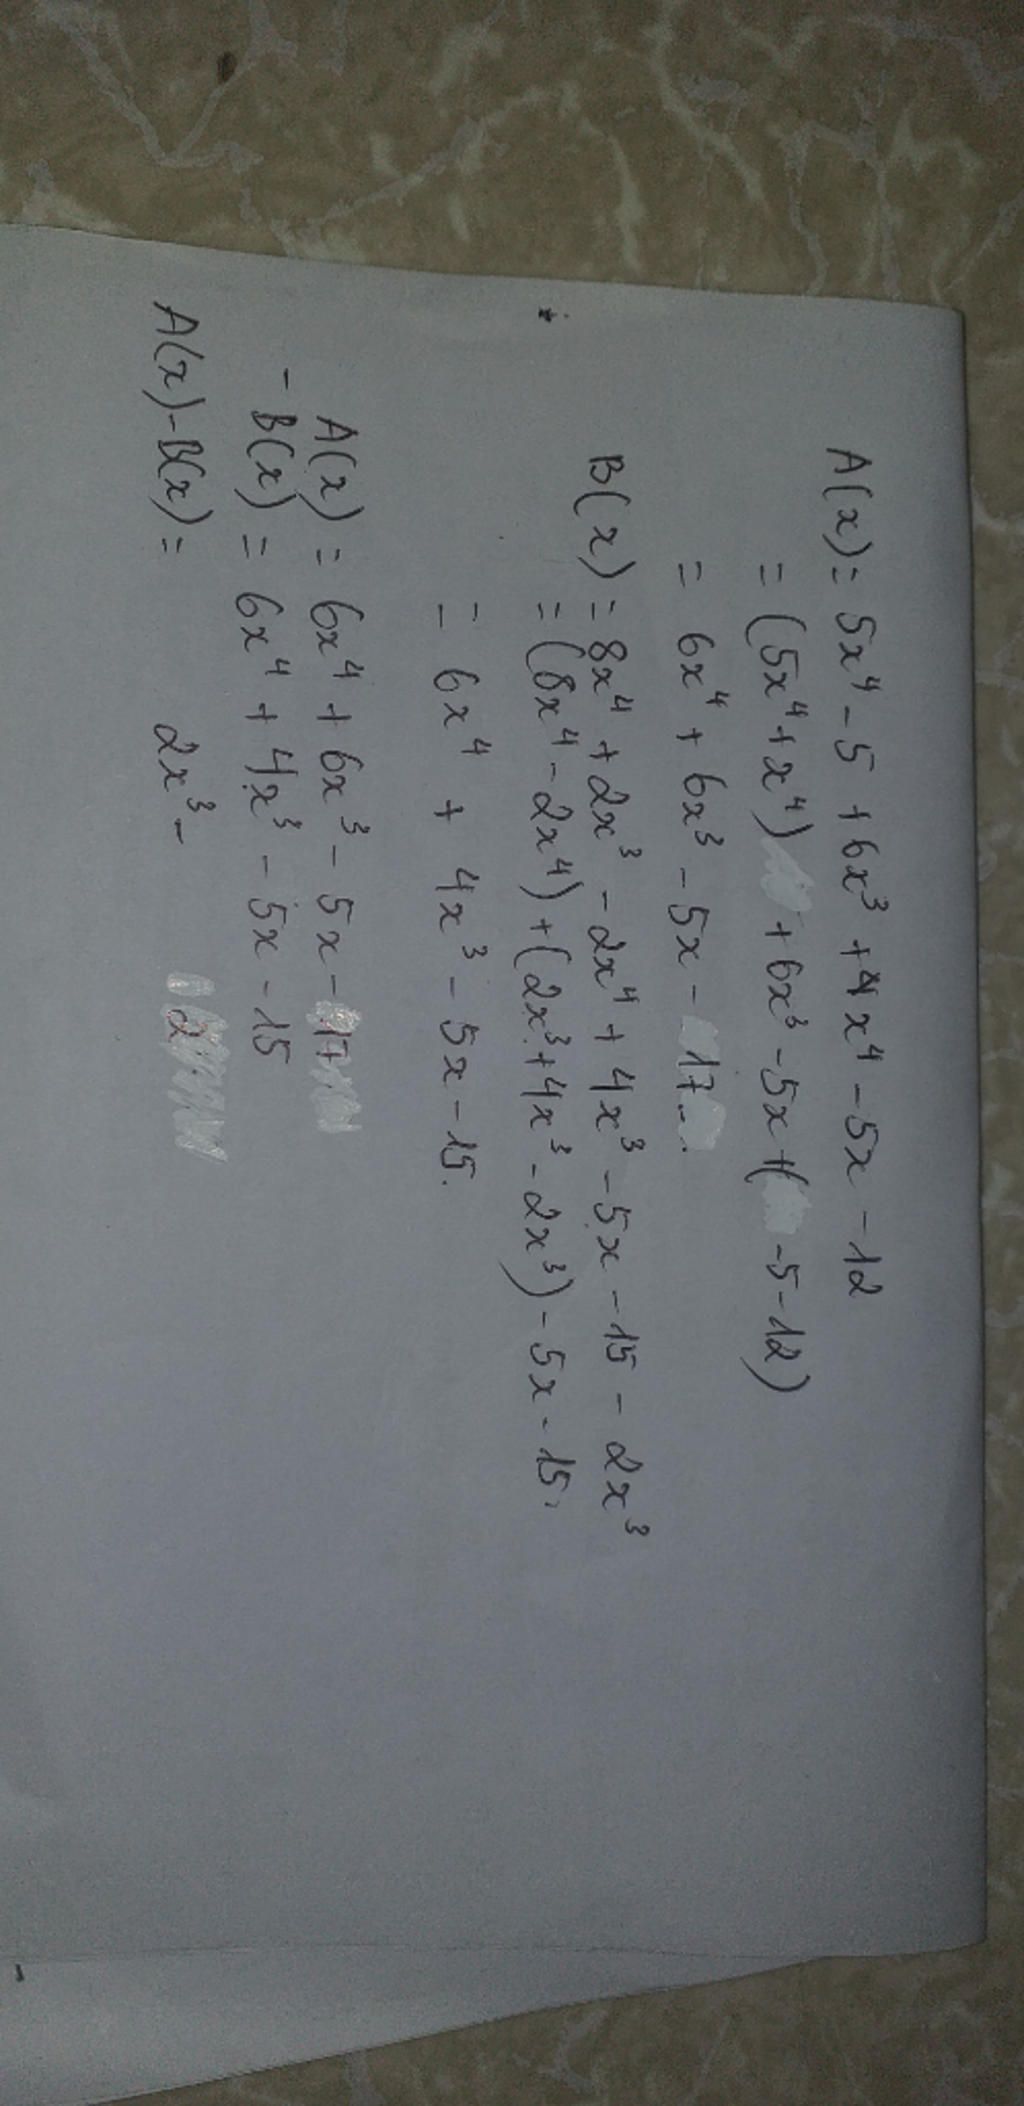 A(x) = 5x⁴ - 5 + 6x³ + x⁴ - 5x - 12
= (5x⁴ + x⁴) + 6x³ - 5x + ( -5 - 12)
= 6x⁴ + 6x³ - 5x - 17.
B(x) = 8x⁴ + 2x³ - 2x⁴ + 4x³ - 5x - 15 - 2x³
= (8x⁴ - 2x⁴) + (2x³ + 4x³ - 2x³) - 5x - 15.
= 6x⁴ + 4x³ - 5x - 15.
A(x) = 6x⁴ + 6x³ - 5x - 17
- B(x) = 6x⁴ + 4x³ - 5x - 15
A(x) - B(x) = 2x³ - 2